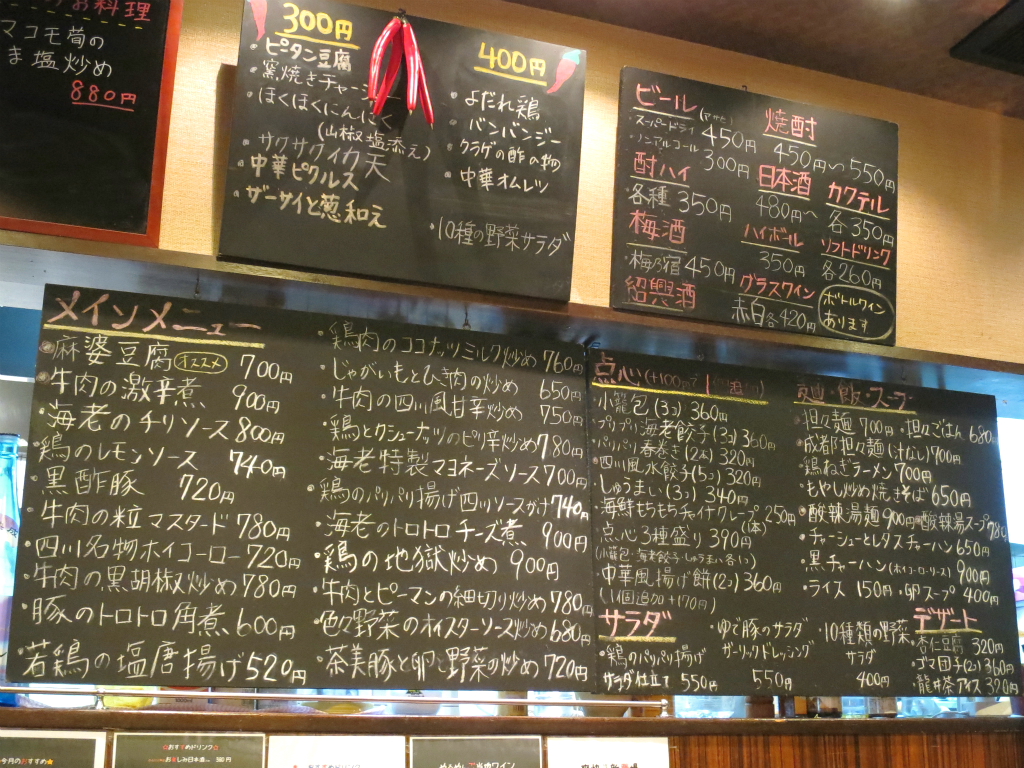 お料理
マコモ筍の
ま塩炒め
880円
300円
ピータン豆腐
窯焼きチャーシュー
ほくほくにんにく
(山椒塩添え)
サクサクイカ天
中華ピクルス
ザーサイと葱和え
400円
よだれ鶏
バンバンジー
クラゲの酢の物
中華オムレツ
・10種の野菜サラダ
ビール(アサヒ)
・スーパードライ 450円
・ノンアルコール 300円
酎ハイ
各種 350円
梅酒
・梅乃宿 450円
紹興酒
焼酎
450円〜550円
日本酒
480円〜
ハイボール
350円
グラスワイン
赤白各420円
カクテル
各350円
ソフトドリンク
各260円
ボトルワイン
あります
メインメニュー
・麻婆豆腐 オススメ 700円
・牛肉の激辛煮 900円
・海老のチリソース 800円
・鶏のレモンソース 740円
・黒酢豚 720円
・牛肉の粒マスタード 780円
・四川名物ホイコーロー 720円
・牛肉の黒胡椒炒め 780円
・豚のトロトロ角煮 600円
・若鶏の塩唐揚げ 520円
・鶏肉のココナッツミルク炒め 760円
・じゃがいもとひき肉の炒め 650円
・牛肉の四川風甘辛炒め 750円
・鶏とカシューナッツのピリ辛炒め 780円
・海老特製マヨネーズソース 700円
・鶏のパリパリ揚げ四川ソースがけ 740円
・海老のトロトロチーズ煮 900円
・鶏の地獄炒め 900円
・牛肉とピーマンの細切り炒め 780円
・色々野菜のオイスターソース炒め 680円
・茶美豚と卵と野菜の炒め 720円
点心
・小籠包(3コ) 360円
・プリプリ海老餃子(3コ) 360円
・パリパリ春巻き(2本) 320円
・四川風水餃子(5コ) 320円
・しゅうまい(3コ) 340円
・海鮮もちもちチャイナクレープ 250円
(1本)
・点心3種盛り 390円
(小籠包・海老餃子・しゅうまい各1コ)
・中華風揚げ餅(2コ) 360円
(1個追加+170円)
麺・飯・スープ
・担々麺 700円 ・担々ごはん 680
・成都担々麺(汁なし) 700円
・鶏ねぎラーメン 700円
・もやし炒め焼きそば 650円
・酸辣湯麺 900円 ・酸辣湯スープ 780
・チャーシューとレタスチャーハン 650円
・黒チャーハン(ホイコーローソース) 900円
・ライス 150円 ・卵スープ 400円
サラダ
・鶏のパリパリ揚げ
サラダ仕立て 550円
・ゆで豚のサラダ
ガーリックドレッシング
550円
・10種類の野菜
サラダ
400円
デザート
・杏仁豆腐 320円
・ゴマ団子(2コ) 360円
・龍井茶アイス 320円
今月のおすすめ★
☆おすすめドリンク☆